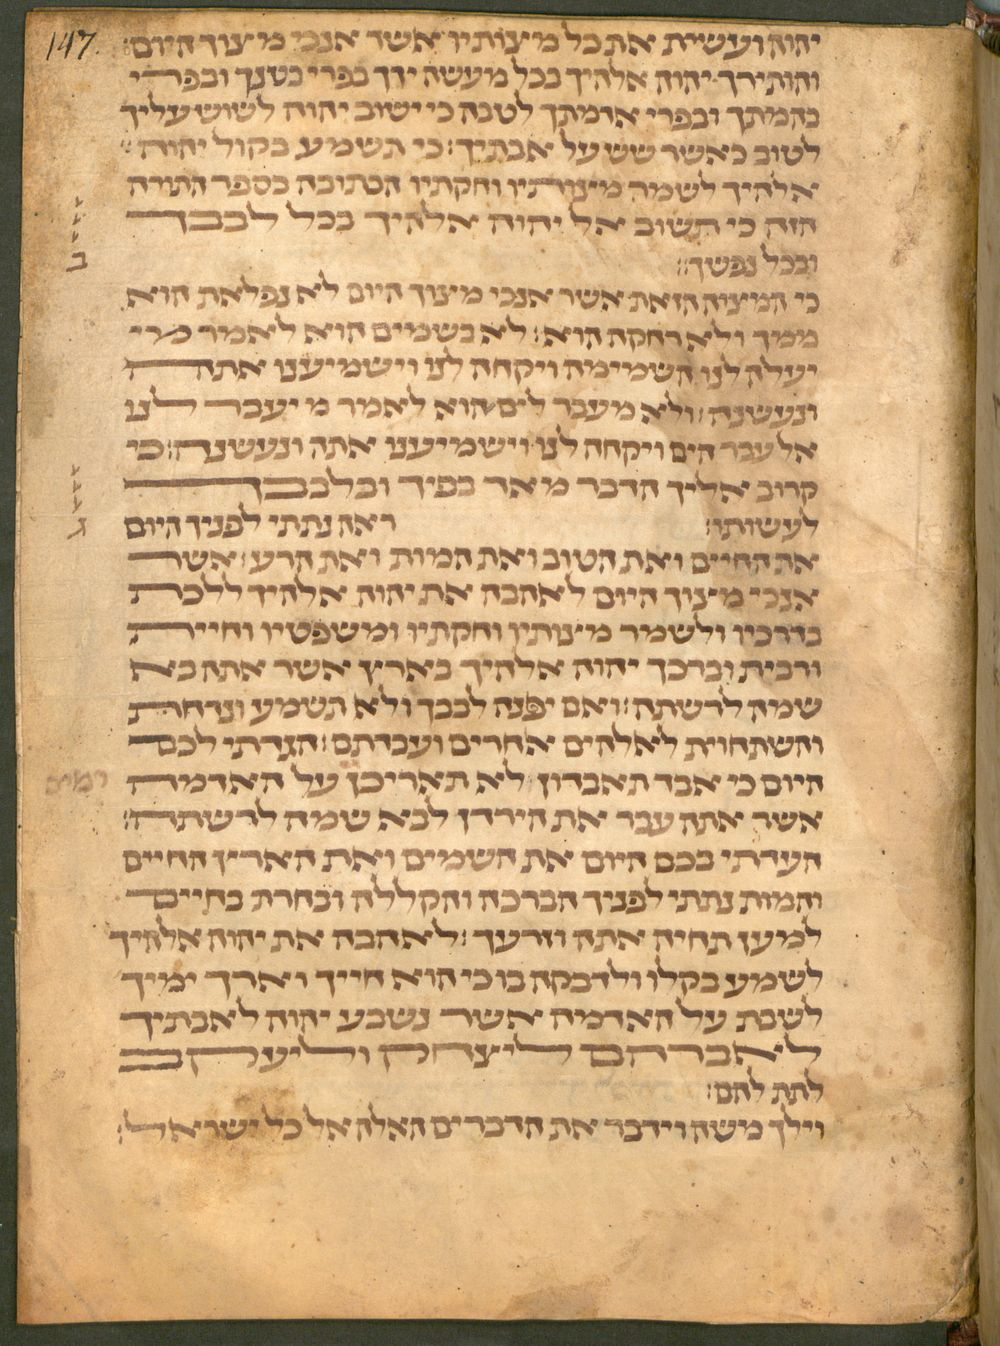 147
יהוה ועשית את כל מיצותיו אשר אנכי מיצוך היום׃
והותירך יהוה אלהיך בכל מעשה ידך בפרי בטנך ובפרי
בהמתך ובפרי אדמתך לטבה כי ישוב יהוה לשוש עליך
לטוב כאשר שש על אבתיך׃ כי תשמע בקול יהוה
אלהיך לשמר מיצותיו וחקתיו הכתובה בספר התורה
הזה כי תשוב אל יהוה אלהיך בכל לבבך
ובכל נפשך׃
ב
כי המיצוה הזאת אשר אנכי מיצוך היום לא נפלאת הוא
ממך ולא רחקה הוא׃ לא בשמים הוא לאמר מי
יעלה לנו השמימה ויקחה לנו וישמיענו אתה
ונעשנה׃ ולא מעבר לים הוא לאמר מי יעבר לנו
אל עבר הים ויקחה לנו וישמיענו אתה ונעשנה׃ כי
קרוב אליך הדבר מיאד בפיך ובלבבך
לעשותו׃ ראה נתתי לפניך היום
ג
את החיים ואת הטוב ואת המות ואת הרע׃ אשר
אנכי מיצוך היום לאהבה את יהוה אלהיך ללכת
בדרכיו ולשמר מיצותיו וחקתיו ומשפטיו וחיית
ורבית וברכך יהוה אלהיך בארץ אשר אתה בא
שמה לרשתה׃ ואם יפנה לבבך ולא תשמע ונדחת
והשתחוית לאלהים אחרים ועבדתם׃ הגדתי לכם
היום כי אבד תאבדון לא תאריכן על האדמה
ימים
אשר אתה עבר את הירדן לבא שמה לרשתה׃
העדתי בכם היום את השמים ואת הארץ החיים
והמות נתתי לפניך הברכה והקללה ובחרת בחיים
למען תחיה אתה וזרעך׃ לאהבה את יהוה אלהיך
לשמע בקלו ולדבקה בו כי הוא חייך וארך ימיך
לשבת על האדמה אשר נשבע יהוה לאבתיך
לאברהם ליצחק וליעקב
לתת להם׃
וילך משה וידבר את הדברים האלה אל כל ישראל׃